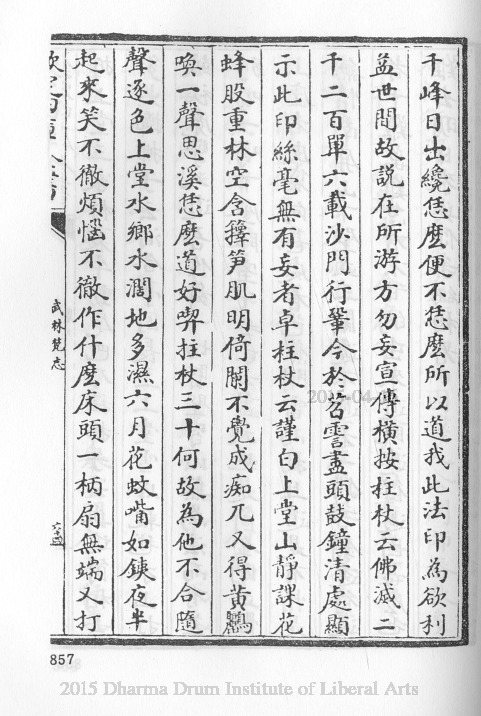 千峰日出纔恁麽便不恁麽所以道我此法印為欲利
益世間故説在所游方勿妄宣傳横按拄杖云佛滅二
千二百單六載沙門行鞏今於苕霅盡頭鼓鐘清處顯
示此印絲毫無有妄者卓柱杖云謹白上堂山静課花
蜂股重林空含籜笋肌明倚闌不覺成痴兀又得黄鸝
喚一聲思溪恁麽道好喫拄杖三十何故為他不合隨
聲逐色上堂水鄉水濶地多濕六月花蚊嘴如鋏夜半
起來笑不徹煩惱不徹作什麽床頭一柄扇無端又打
武林梵志
857
2015 Dharma Drum Institute of Liberal Arts